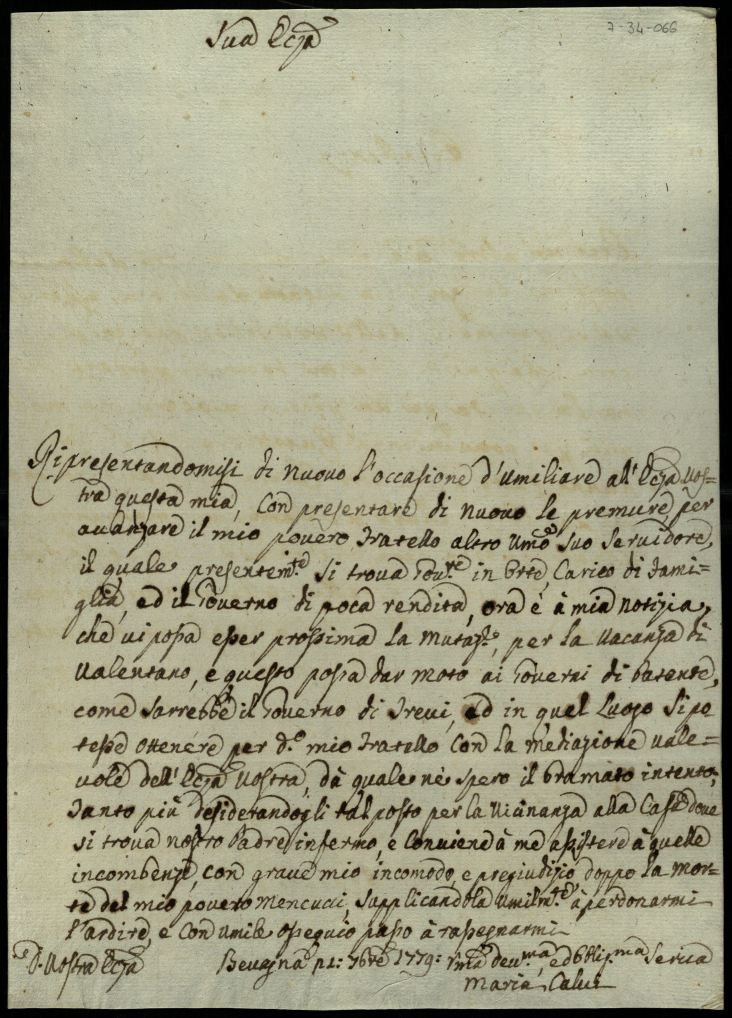 7-34-066
Sua Ecza
Ripresentandomisi di nuovo l'occasione d'umiliare all'Ecza Vos=
tra questa mia, con presentare di nuovo le premure per
avanzare il mio povero Fratello altro Umo Suo Servidore,
il quale presentemte si trova Govre in Orte, Carico di Fami=
glia, ed il Governo di poca rendita, ora è à mia notizia,
che vi possa esser prossima la mutaze, per la vacanza di
Valentano, e questo possa dar moto ai Governi di Patente,
come sarrebbe il Governo di Trevi, ed in quel Luogo si po
tesse ottenere per do mio Fratello con la mediazione vale=
vole dell'Ecza Vostra, dà quale nè spero il bramato intento,
Tanto più desiderandogli tal posto per la Vicinanza alla Casa dove
si trova nostro Padre infermo, e conviene à me assistere à quelle
incombenze, con grave mio incomodo, e pregiudizio doppo la mor=
te del mio povero Mencucci, supplicandola umilmte à perdonarmi
l'ardire, e con umile ossequio passo à rassegnarmi
D. Vostra Ecza Bevagna p. 1: 7bre 1779: devma, ed Obbligma Serva
Maria Calvi